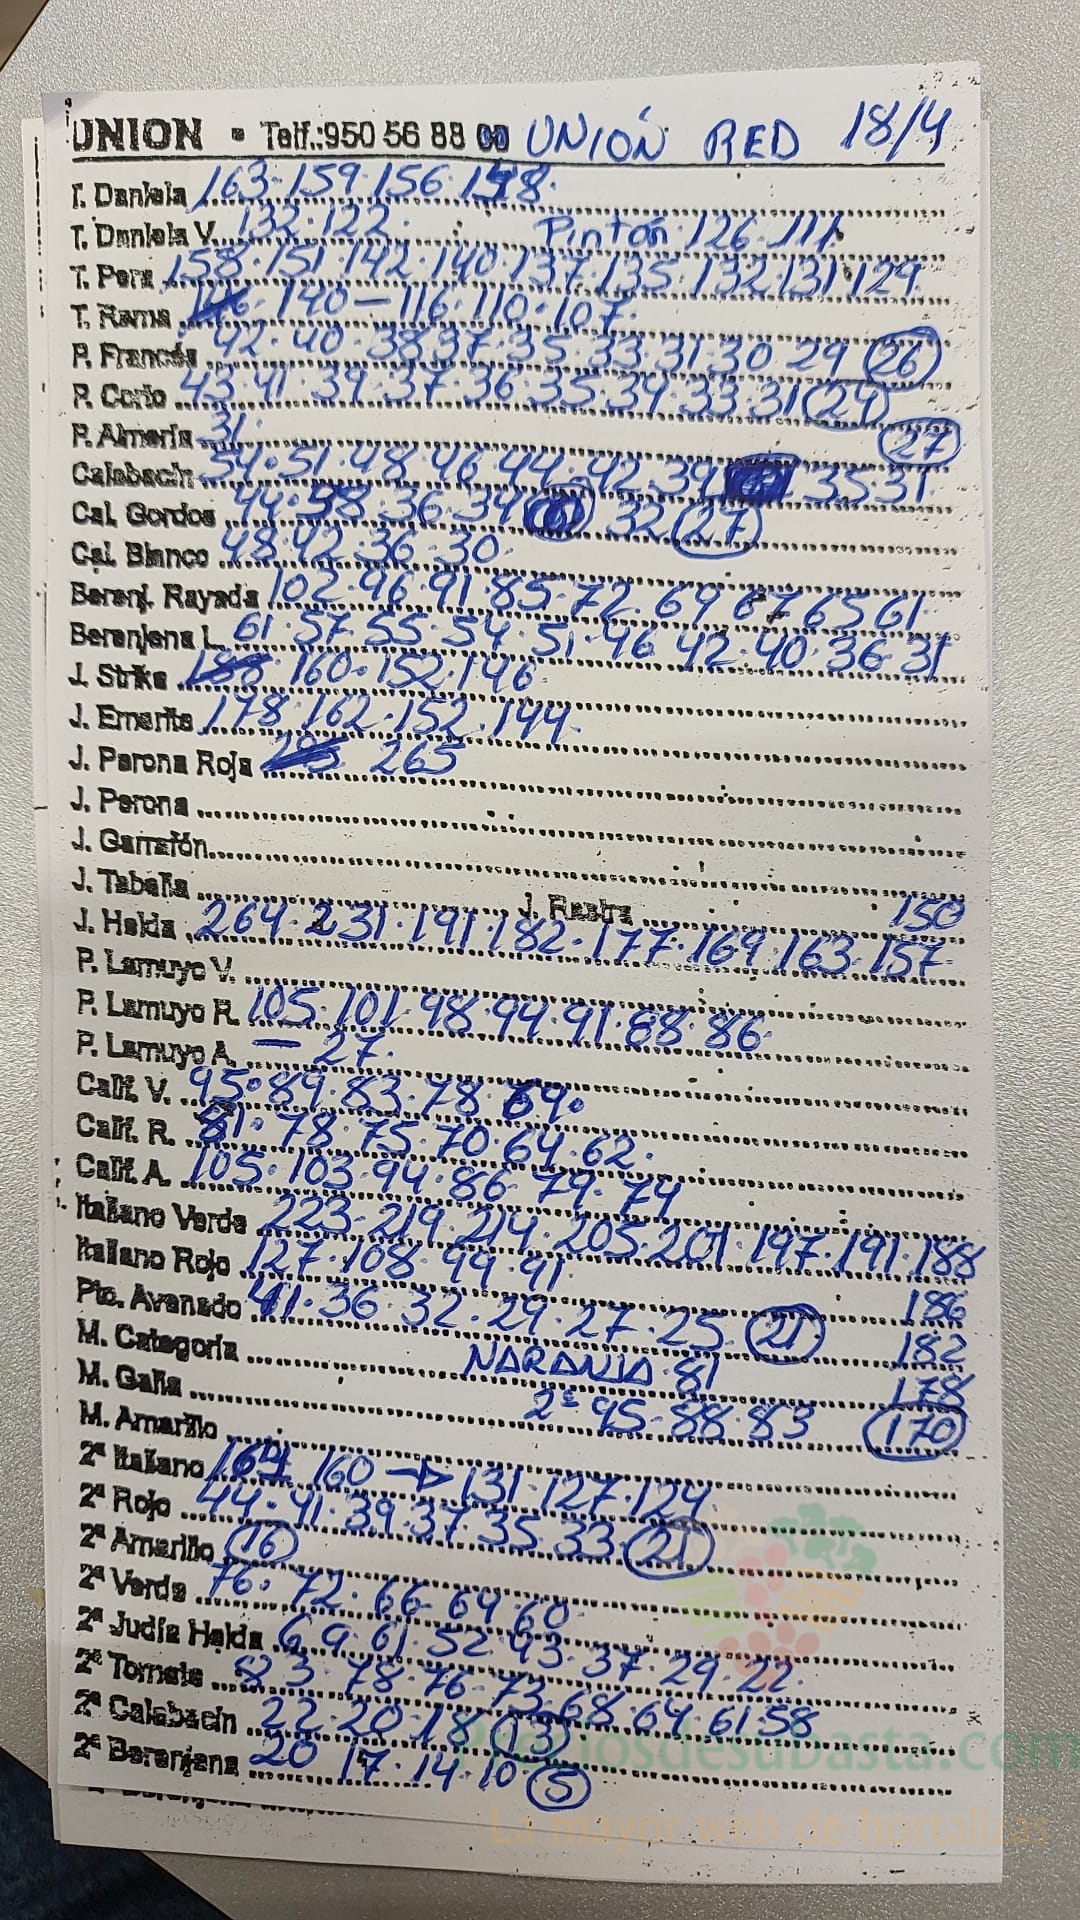 UNION • Telf.:950 56 88 00 UNIÓN RED 18/4
T. Daniela 163·159·156·148·
T. Daniela V. 132·122· Pintón·126·111
T. Pera 158·151·142·140·137·135·132·131·129
T. Rama 140—116·110·107·
P. Francés 42·40·38 37·35·33·31·30 29 (26)
P. Corto 43·41·39·37·36·35·34·33·31 (29)
P. Almería 31· (27)
Calabacín 54·51·48·46·44·42·39 35·31
Cal. Gordos 44·38·36·34 32 (27)
Cal. Blanco 48·42·36·30·
Berenj. Rayada 102·96·91·85·72·69 67 65 61·
Berenjena L. 61·57·55·54·51·46 42·40·36·31
J. Strike 160·152·146·
J. Emerite 178·162·152·144·
J. Perona Roja 265
J. Perona
J. Garrafón
J. Tabella J. Rastra 150
J. Helda 264·231·191·182·177·169·163·157
P. Lamuyo V.
P. Lamuyo R. 105·101·98·94·91·88·86·
P. Lamuyo A. — 27·
Calif. V. 95·89·83·78·69·
Calif. R. 81·78·75·70·64·62·
Calif. A. 105·103·94·86·79·74
Italiano Verde 223·219·214·205·201·197·191·188
Italiano Rojo 127·108·99·91· 186
Pto. Avanado 41·36·32·29·27·25 (21) 182
M. Categoría NARANJA 81 178
M. Galia 2ª 95-88·83 (170)
M. Amarillo
2ª Italiano 164 160 → 131·127·124
2ª Rojo 44·41·39·37·35·33·(21)
2ª Amarillo (16)
2ª Verde 76·72·66·64 60·
2ª Judía Helda 69·61·52·43·37·29·22·
2ª Tomate 83·78·76·73·68·64·61·58
2ª Calabacín 22·20·18 (13)
2ª Berenjena 20 17·14·10 (5)
Preciosdesubasta.com
La mayor web de hortalizas